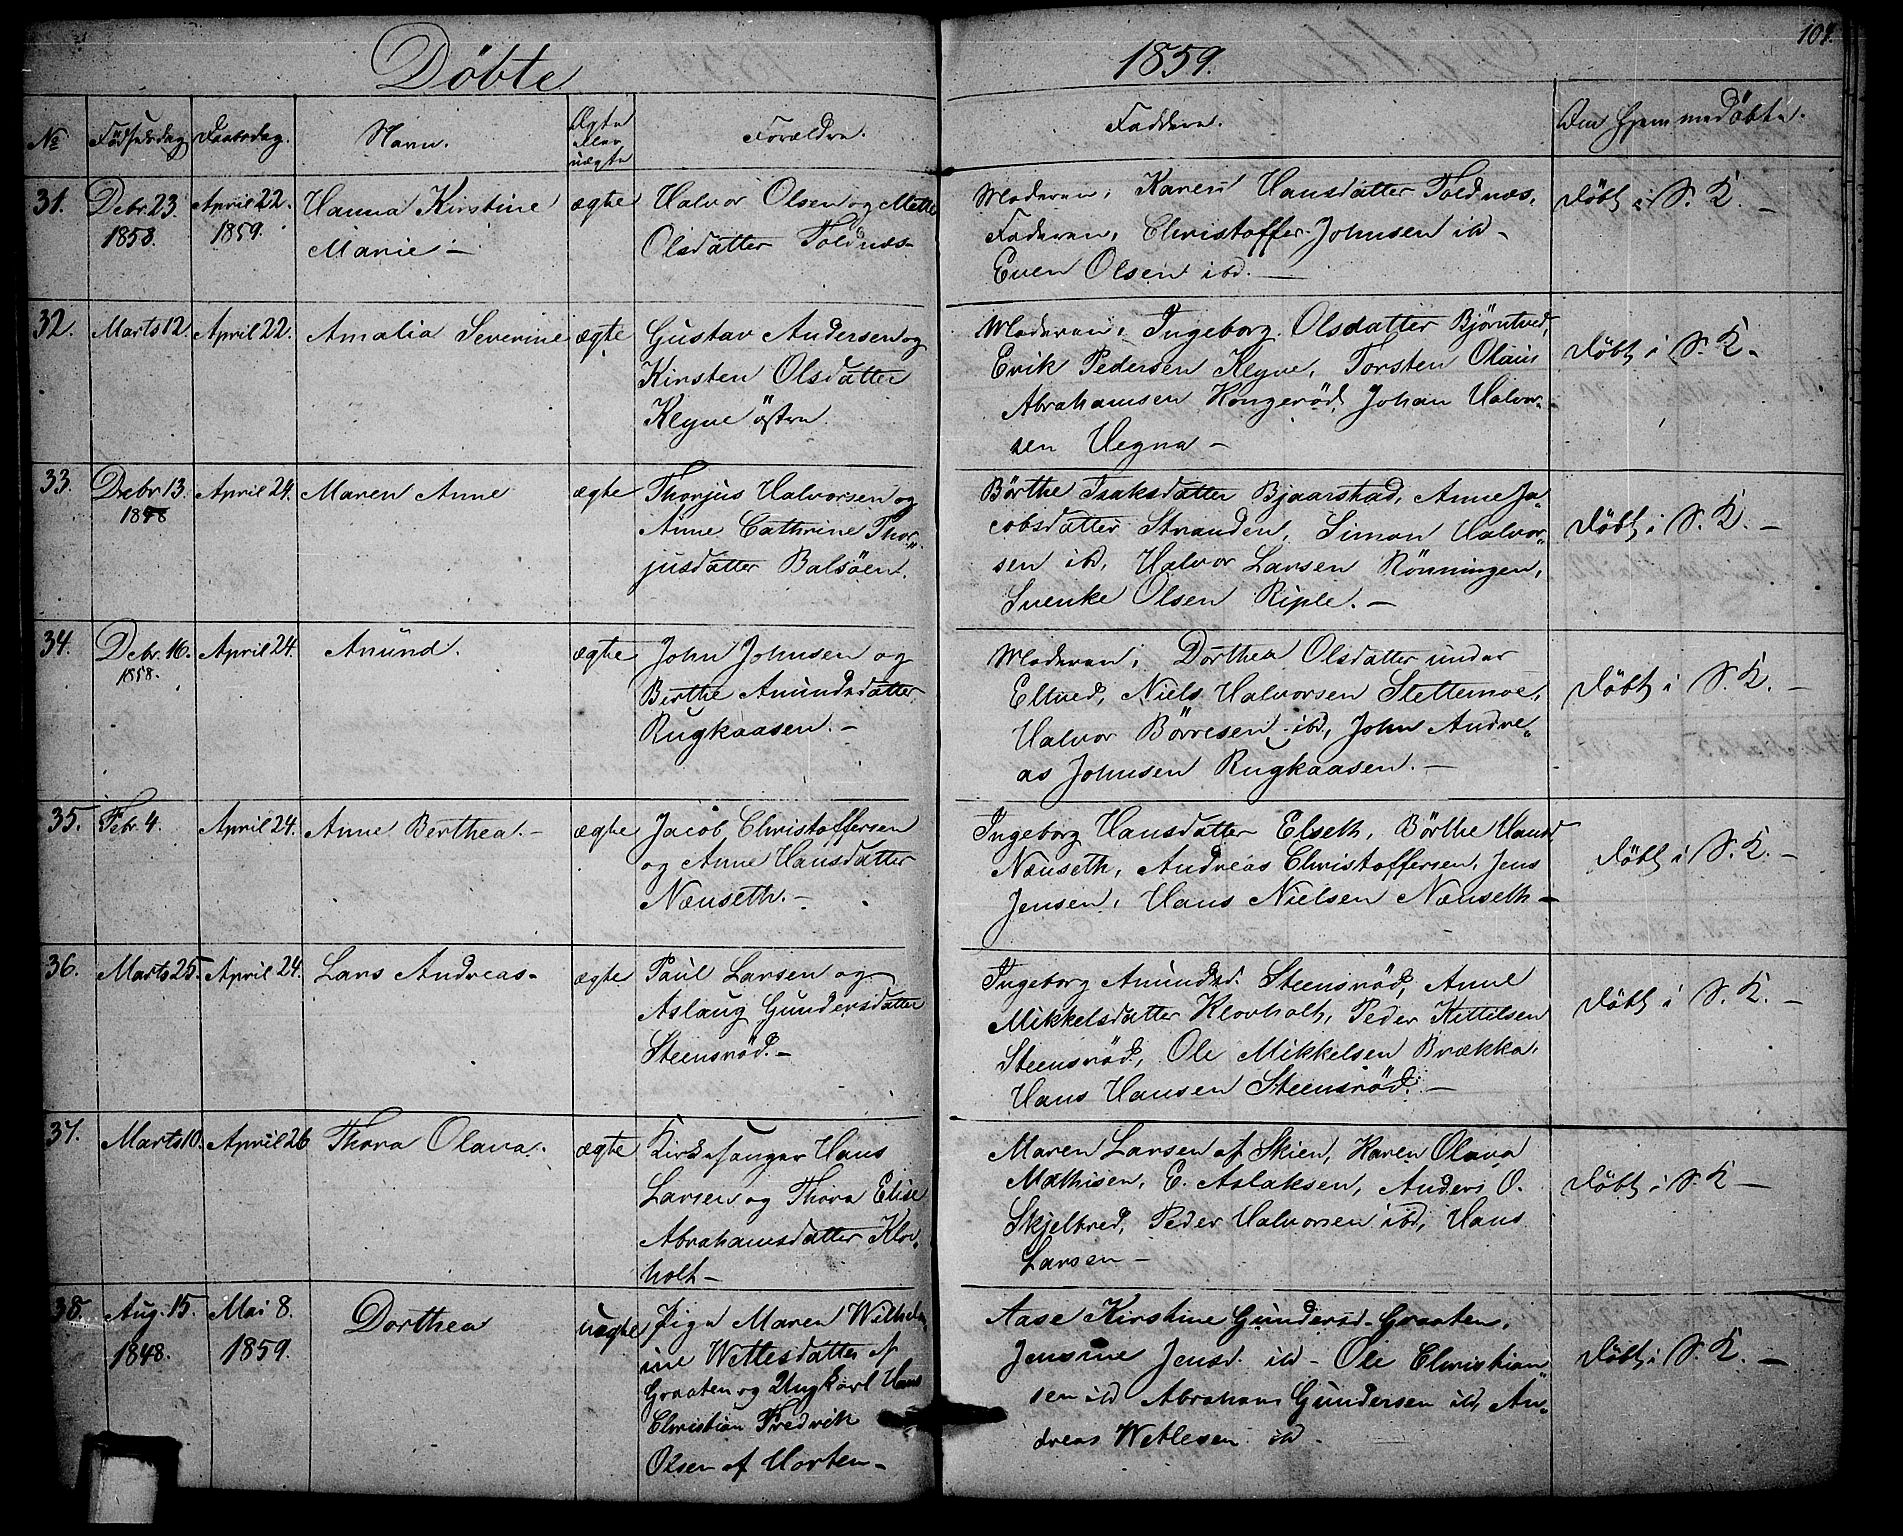 Döbte
1859.
104.
No
Födselsdag
Daabsdag.
Navn.
Ægte eller uægte
Forældre.
Faddere.
Om hjemmedöbte.
31.
Debr. 23. 1858.
April 22. 1859.
Hanna Kirstine
Marie –
ægte
Halvor Olsen og Mette
Olsdatter Toldnæs-
Moderen, Karen Hansdatter Toldnæs,
Faderen, Christoffer Johnsen ibd –
Even Olsen ibd. –
Döbt i S. K. –
32.
Marts 12
April 22.
Amalia Severine
ægte
Gustav Andersen og
Kirsten Olsdatter
Klyve östre.
Moderen, Ingeborg Olsdatter Björntved,
Erik Pedersen Klyve, Torsten Olaus
Abrahamsen Kongeröd, Johan Halvor-
sen Hegna –
Döbt i S. K –
33.
Debr 13. 1858
April 24.
Maren Anne
ægte
Thorjus Halvorsen og
Anne Cathrine Thor-
jusdatter Balsöen.
Börthe Isaksdatter Bjaarstad, Anne Ja-
cobsdatter Stranden, Simon Halvor-
sen ibd, Halvor Larsen Rönningen,
Svenke Olsen Riple. –
Döbt i S. K. –
34.
Debr. 16. 1858.
April 24.
Anund.
ægte
John Johnsen og
Berthe Amundsdatter
Rugkaasen. –
Moderen, Dorthea Olsdatter under
Eltved, Niels Halvorsen Slettemoe,
Halvor Börresen ibd, John Andre-
as Johnsen Rugkaasen. –
Döbt i S. K. –
35.
Febr. 4.
April 24.
Anne Berthea. –
ægte
Jacob Christoffersen
og Anne Hansdatter
Nænseth. –
Ingeborg Hansdatter Elseth, Börthe Hansd
Nænseth, Andreas Christoffersen, Jens
Jensen, Hans Nielsen Nænseth –
Döbt i S. K. –
36.
Marts 25.
April 24.
Lars Andreas –
ægte
Paul Larsen og
Aslaug Gundersdatter
Steensröd. –
Ingeborg Amundsd. Steensröd, Anne
Mikkelsdatter Klovholt, Peder Kittilsen
Steensröd, Ole Mikkelsen Brække,
Hans Hansen Steensröd. –
Döbt i S. K. –
37.
Marts 10.
April 26
Thora Olava.
ægte
Kirkesanger Hans
Larsen og Thora Elise
Abrahamsdatter Klov-
holt –
Maren Larsen af Skien, Karen Olava
Mathisen, E. Aslaksen, Anders O.
Skjelbred, Peder Halvorsen ibd, Hans
Larsen –
Döbt i S. K –
38.
Aug. 15. 1848.
Mai 8. 1859.
Dorthea
uægte
Pige Maren Wilhelm-
ine Wetlesdatter af
Graaten og Ungkarl Hans
Christian Fredrik
Olsen af Horten –
Aase Kirstine Gundersd. Graaten,
Jensine Jensd. ibd – Ole Christian
sen ibd Abraham Gundersen ibd, An-
dreas Wetlesen ibd –
Döbt i S. K. –